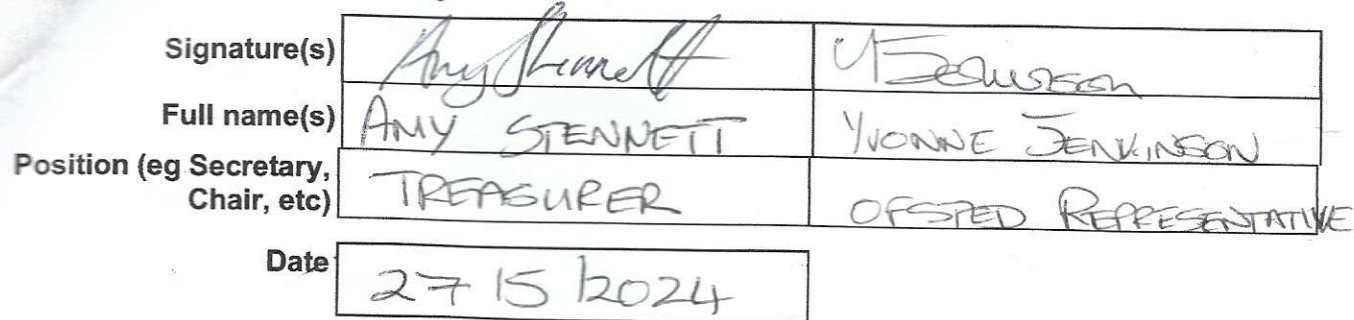 Signature(s) Amy Stennett Y Jenkinson
Full name(s) AMY STENNETT YVONNE JENKINSON
Position (eg Secretary, TREASURER OFSTED REPRESENTATIVE
Chair, etc)
Date 27/5/2024